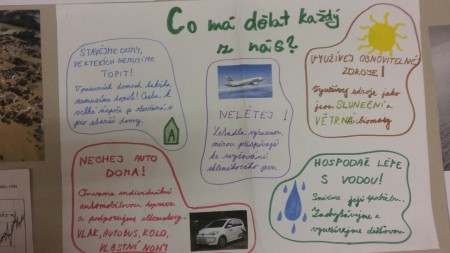 Co má dělat každý
z nás?
STAVĚJME DOMY,
VE KTERÝCH NEMUSÍME
TOPIT!
V pasivních domech takřka
nemusíme topit! Cesta k
velké úspoře je otevřená i
pro starší domy.
NELEŤEJ!
Letadla významnou
měrou přispívají
ke zvyšování
skleníkového jevu.
VYUŽÍVEJ OBNOVITELNÉ
ZDROJE!
Využívej zdroje jako
jsou SLUNEČNÍ a
VĚTRNÁ biomasy
NECHEJ AUTO
DOMA!
Omezme individuální
automobilovou dopravu
a podporujme alternativy.
VLAK, AUTOBUS, KOLO,
VLASTNÍ NOHY
HOSPODAŘ LÉPE
S VODOU!
Snižme její spotřebu.
Zachytávejme a
využívejme dešťovou.